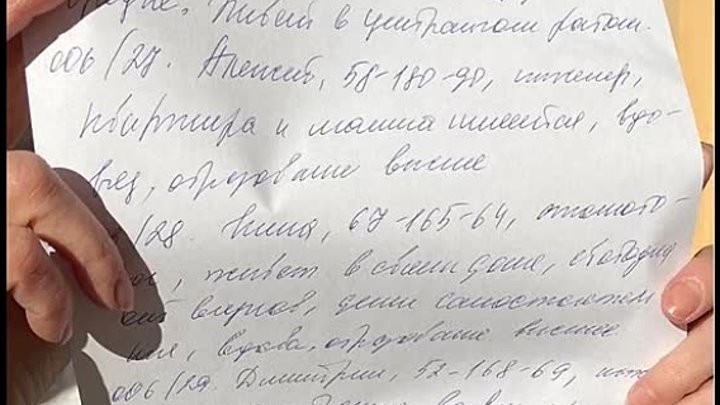 Живет в центральном районе.
006/27. Алексей, 58-180-90, инженер,
квартира и машина имеется, вдо-
вец, образование высшее
/28. Нина, 67-165-64, стомато-
, живет в своем доме, свободна
детей самостоятель
ные, вдова, образование высшее
006/29. Дмитрий, 52-168-69,